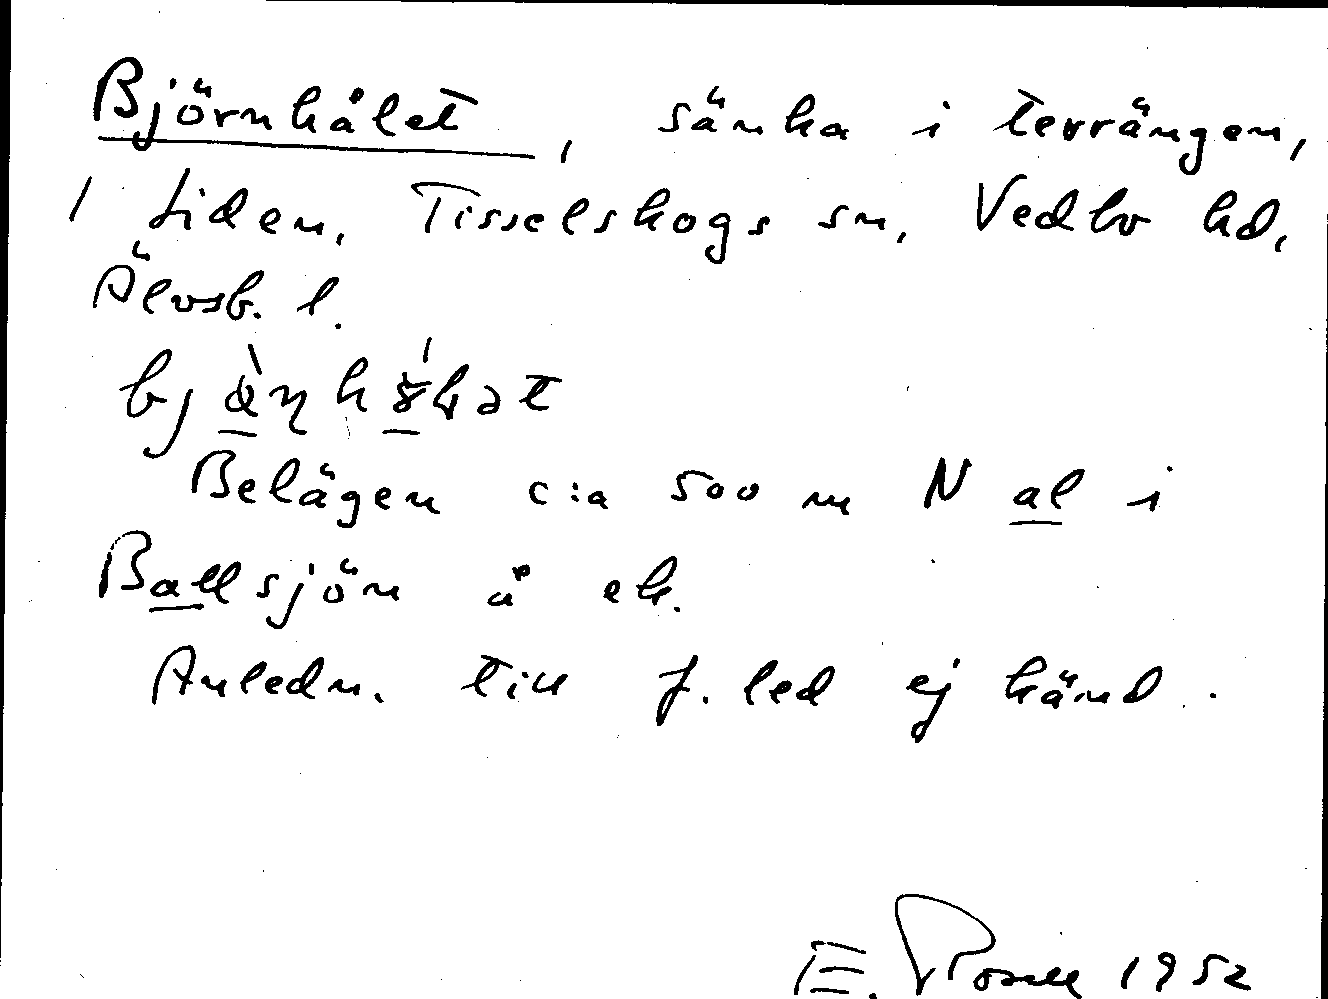 Björnhålet, sänka i terrängen,
/ Liden, Tisselskogs sn, Vedbo hd,
Älvsb. l.
Belägen c:a 500 m N al i
Ballsjön å ek.
Anledn. till f. led ej känd.
E. Rosell 1952